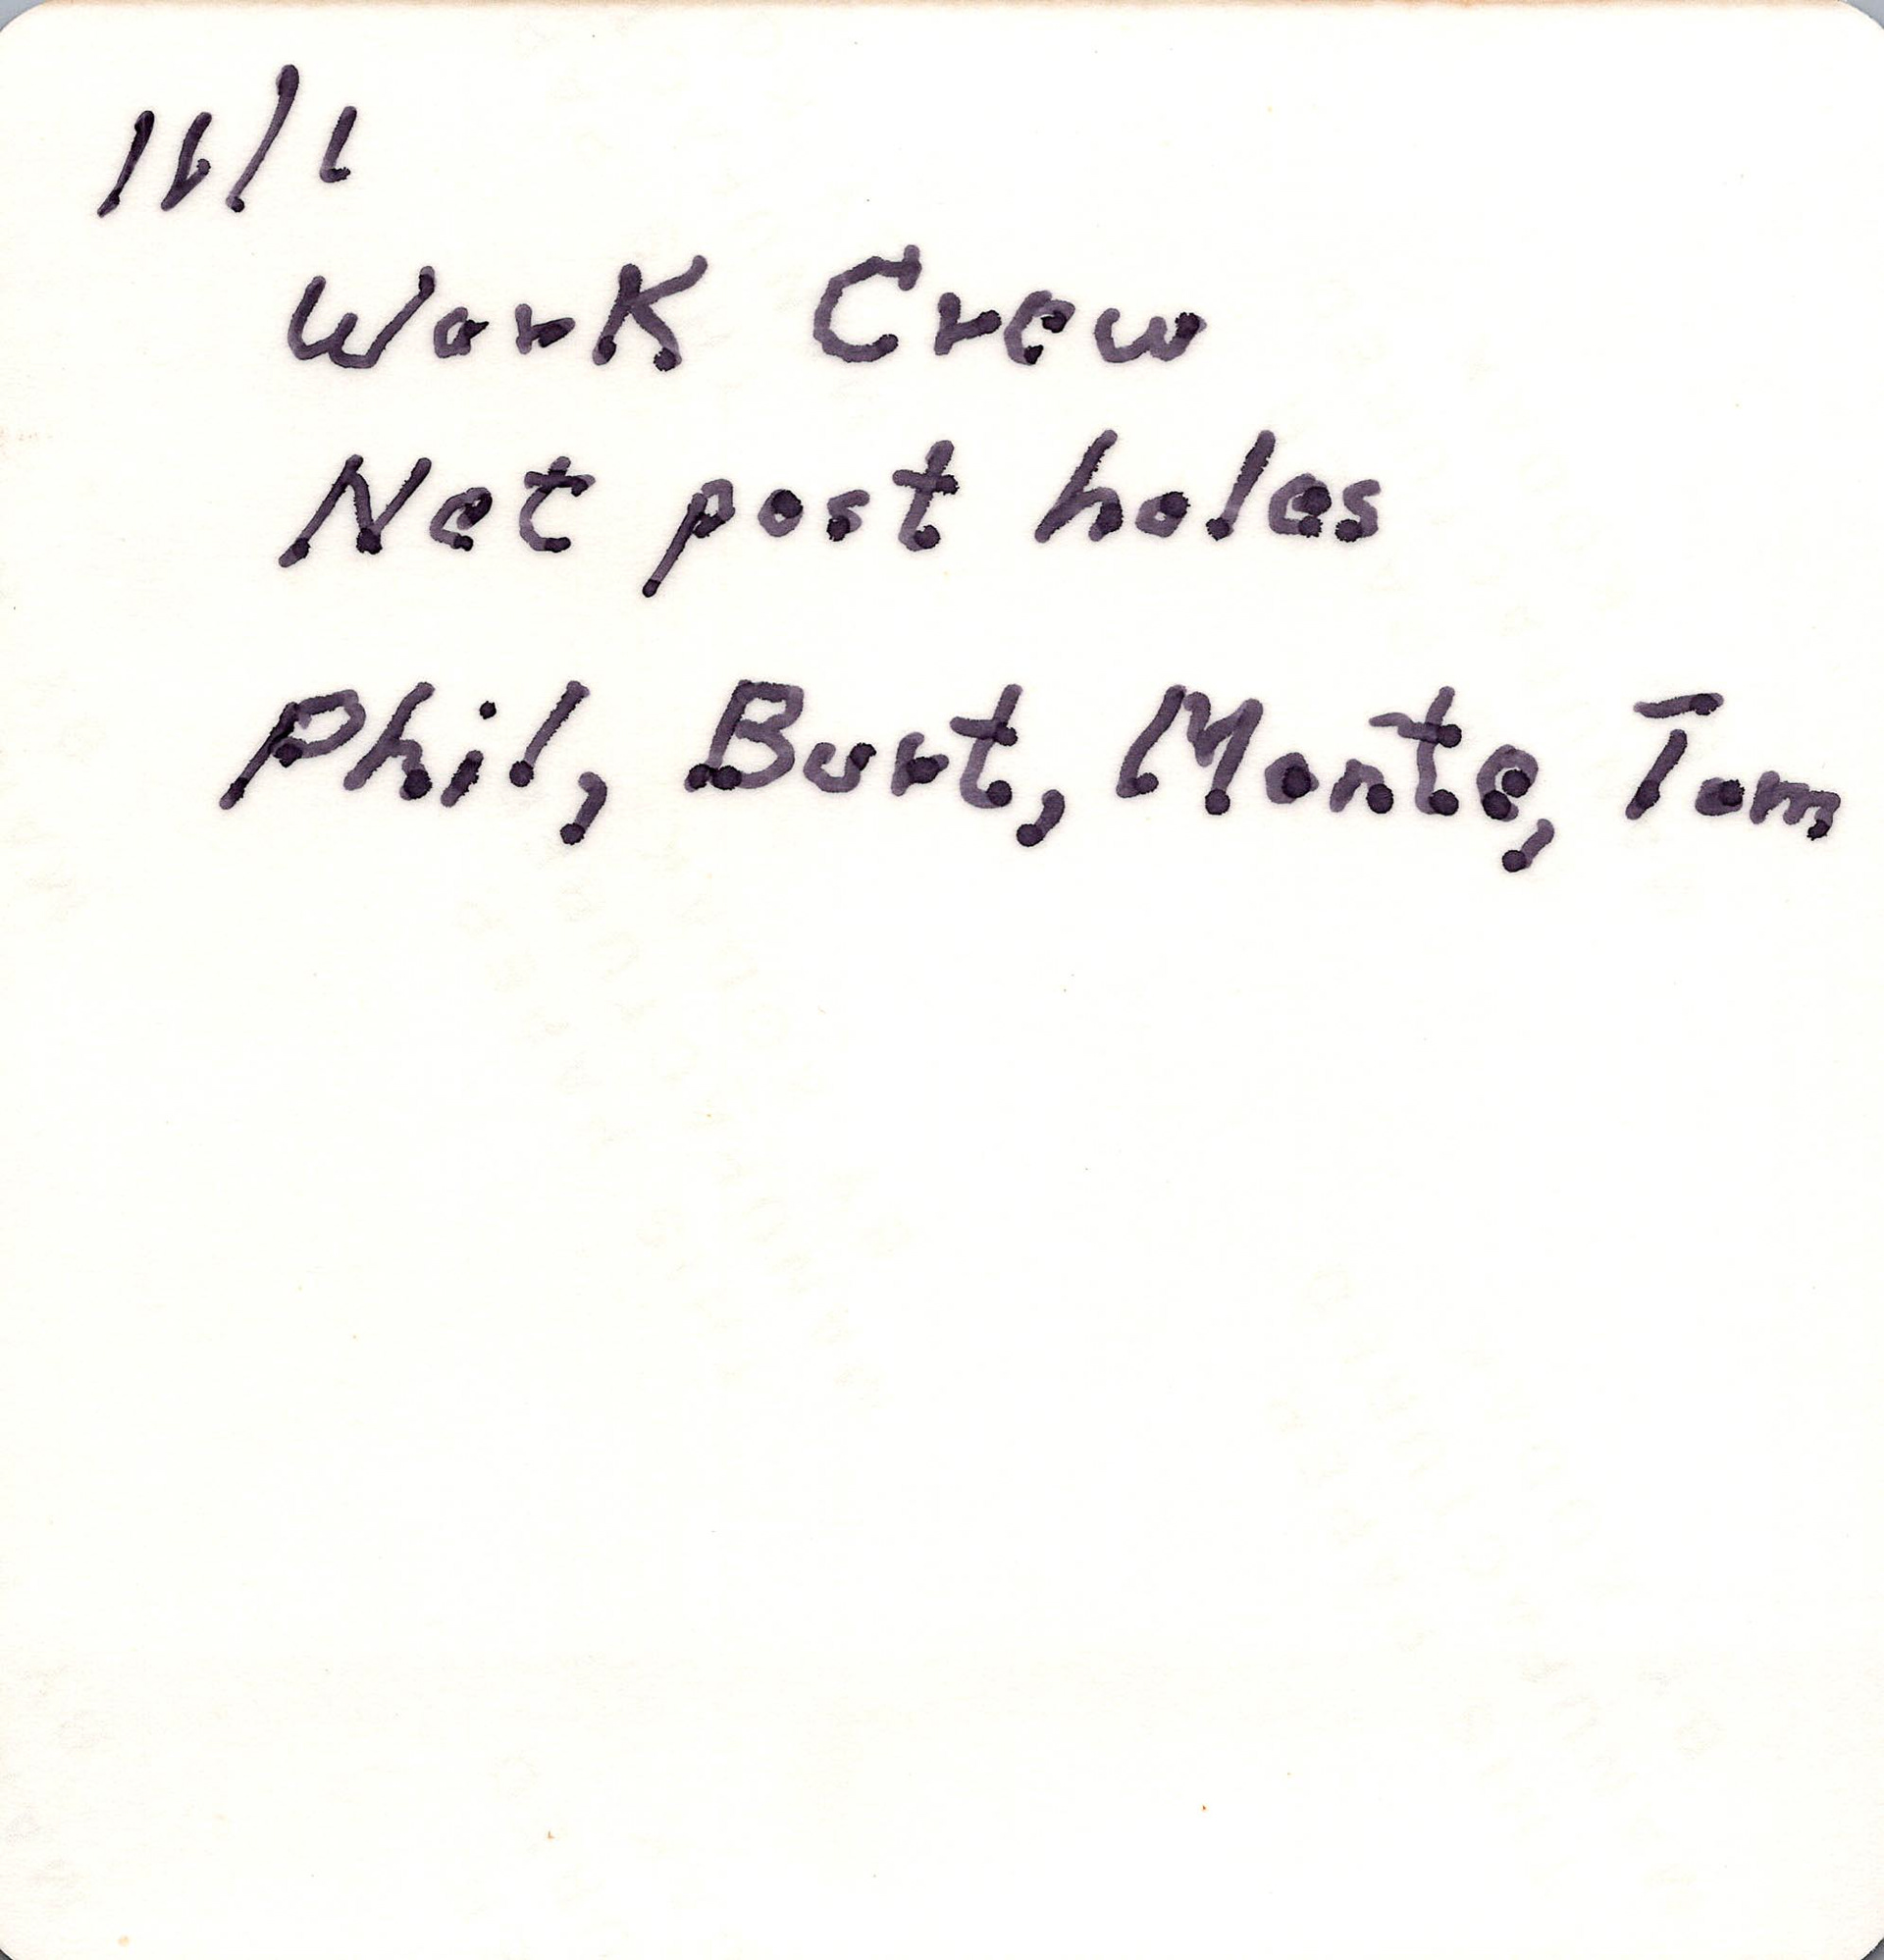 11/1
Work Crew
Net post holes
Phil, Burt, Monte, Tom